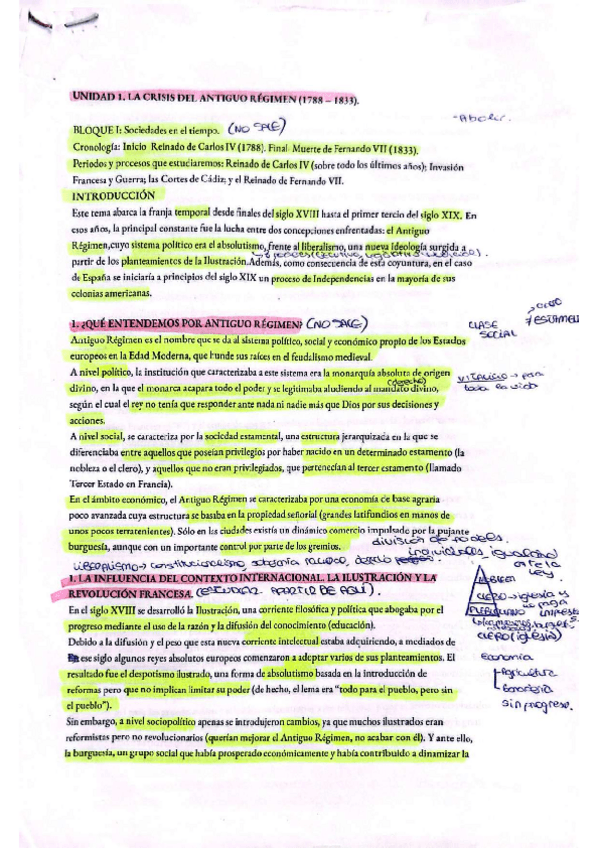 UNIDAD 1. LA CRISIS DEL ANTIGUO RÉGIMEN (1788 – 1833).
-Abolir.
BLOQUE I: Sociedades en el tiempo. (NO SALE)
Cronología: Inicio Reinado de Carlos IV (1788). Final: Muerte de Fernando VII (1833).
Periodos y procesos que estudiaremos: Reinado de Carlos IV (sobre todo los últimos años); Invasión
Francesa y Guerra; las Cortes de Cádiz; y el Reinado de Fernando VII.
INTRODUCCIÓN
Este tema abarca la franja temporal desde finales del siglo XVIII hasta el primer tercio del siglo XIX. En
esos años, la principal constante fue la lucha entre dos concepciones enfrentadas: el Antiguo
Régimen,cuyo sistema político era el absolutismo, frente al liberalismo, una nueva ideología surgida a
partir de los planteamientos de la Ilustración.Además, como consecuencia de esta coyuntura, en el caso
de España se iniciaría a principios del siglo XIX un proceso de Independencias en la mayoría de sus
colonias americanas.
1. ¿QUÉ ENTENDEMOS POR ANTIGUO RÉGIMEN? (NO SALE)
CLASE SOCIAL ≠ ESTAMEN
Antiguo Régimen es el nombre que se da al sistema político, social y económico propio de los Estados
europeos en la Edad Moderna, que hunde sus raíces en el feudalismo medieval.
A nivel político, la institución que caracterizaba a este sistema era la monarquía absoluta de origen
divino, en la que el monarca acapara todo el poder y se legitimaba aludiendo al mandato divino,
(derecho)
VITALICIO → para
toda la vida
según el cual el rey no tenía que responder ante nada ni nadie más que Dios por sus decisiones y
acciones.
A nivel social, se caracteriza por la sociedad estamental, una estructura jerarquizada en la que se
diferenciaba entre aquellos que poseían privilegios por haber nacido en un determinado estamento (la
nobleza o el clero), y aquellos que no eran privilegiados, que pertenecían al tercer estamento (llamado
Tercer Estado en Francia).
En el ámbito económico, el Antiguo Régimen se caracterizaba por una economía de base agraria
poco avanzada cuya estructura se basaba en la propiedad señorial (grandes latifundios en manos de
unos pocos terratenientes). Sólo en las ciudades existía un dinámico comercio impulsado por la pujante
burguesía, aunque con un importante control por parte de los gremios.
división de poderes.
individuales igualdad
ante la
ley
Liberalismo → constitucionalismo, soberanía nacional, derecho
1. LA INFLUENCIA DEL CONTEXTO INTERNACIONAL. LA ILUSTRACIÓN Y LA
REVOLUCIÓN FRANCESA. (ESTUDIAR A PARTIR DE AQUÍ).
CLERO → iglesia y
CLERO (iglesia)
En el siglo XVIII se desarrolló la Ilustración, una corriente filosófica y política que abogaba por el
progreso mediante el uso de la razón y la difusión del conocimiento (educación).
Debido a la difusión y el peso que esta nueva corriente intelectual estaba adquiriendo, a mediados de
ese siglo algunos reyes absolutos europeos comenzaron a adoptar varios de sus planteamientos. El
resultado fue el despotismo ilustrado, una forma de absolutismo basada en la introducción de
reformas pero que no implican limitar su poder (de hecho, el lema era “todo para el pueblo, pero sin
el pueblo”).
economía
Agricultura
Ganadería
sin progreso.
Sin embargo, a nivel sociopolítico apenas se introdujeron cambios, ya que muchos ilustrados eran
reformistas pero no revolucionarios (querían mejorar el Antiguo Régimen, no acabar con él). Y ante ello,
la burguesía, un grupo social que había prosperado económicamente y había contribuido a dinamizar la